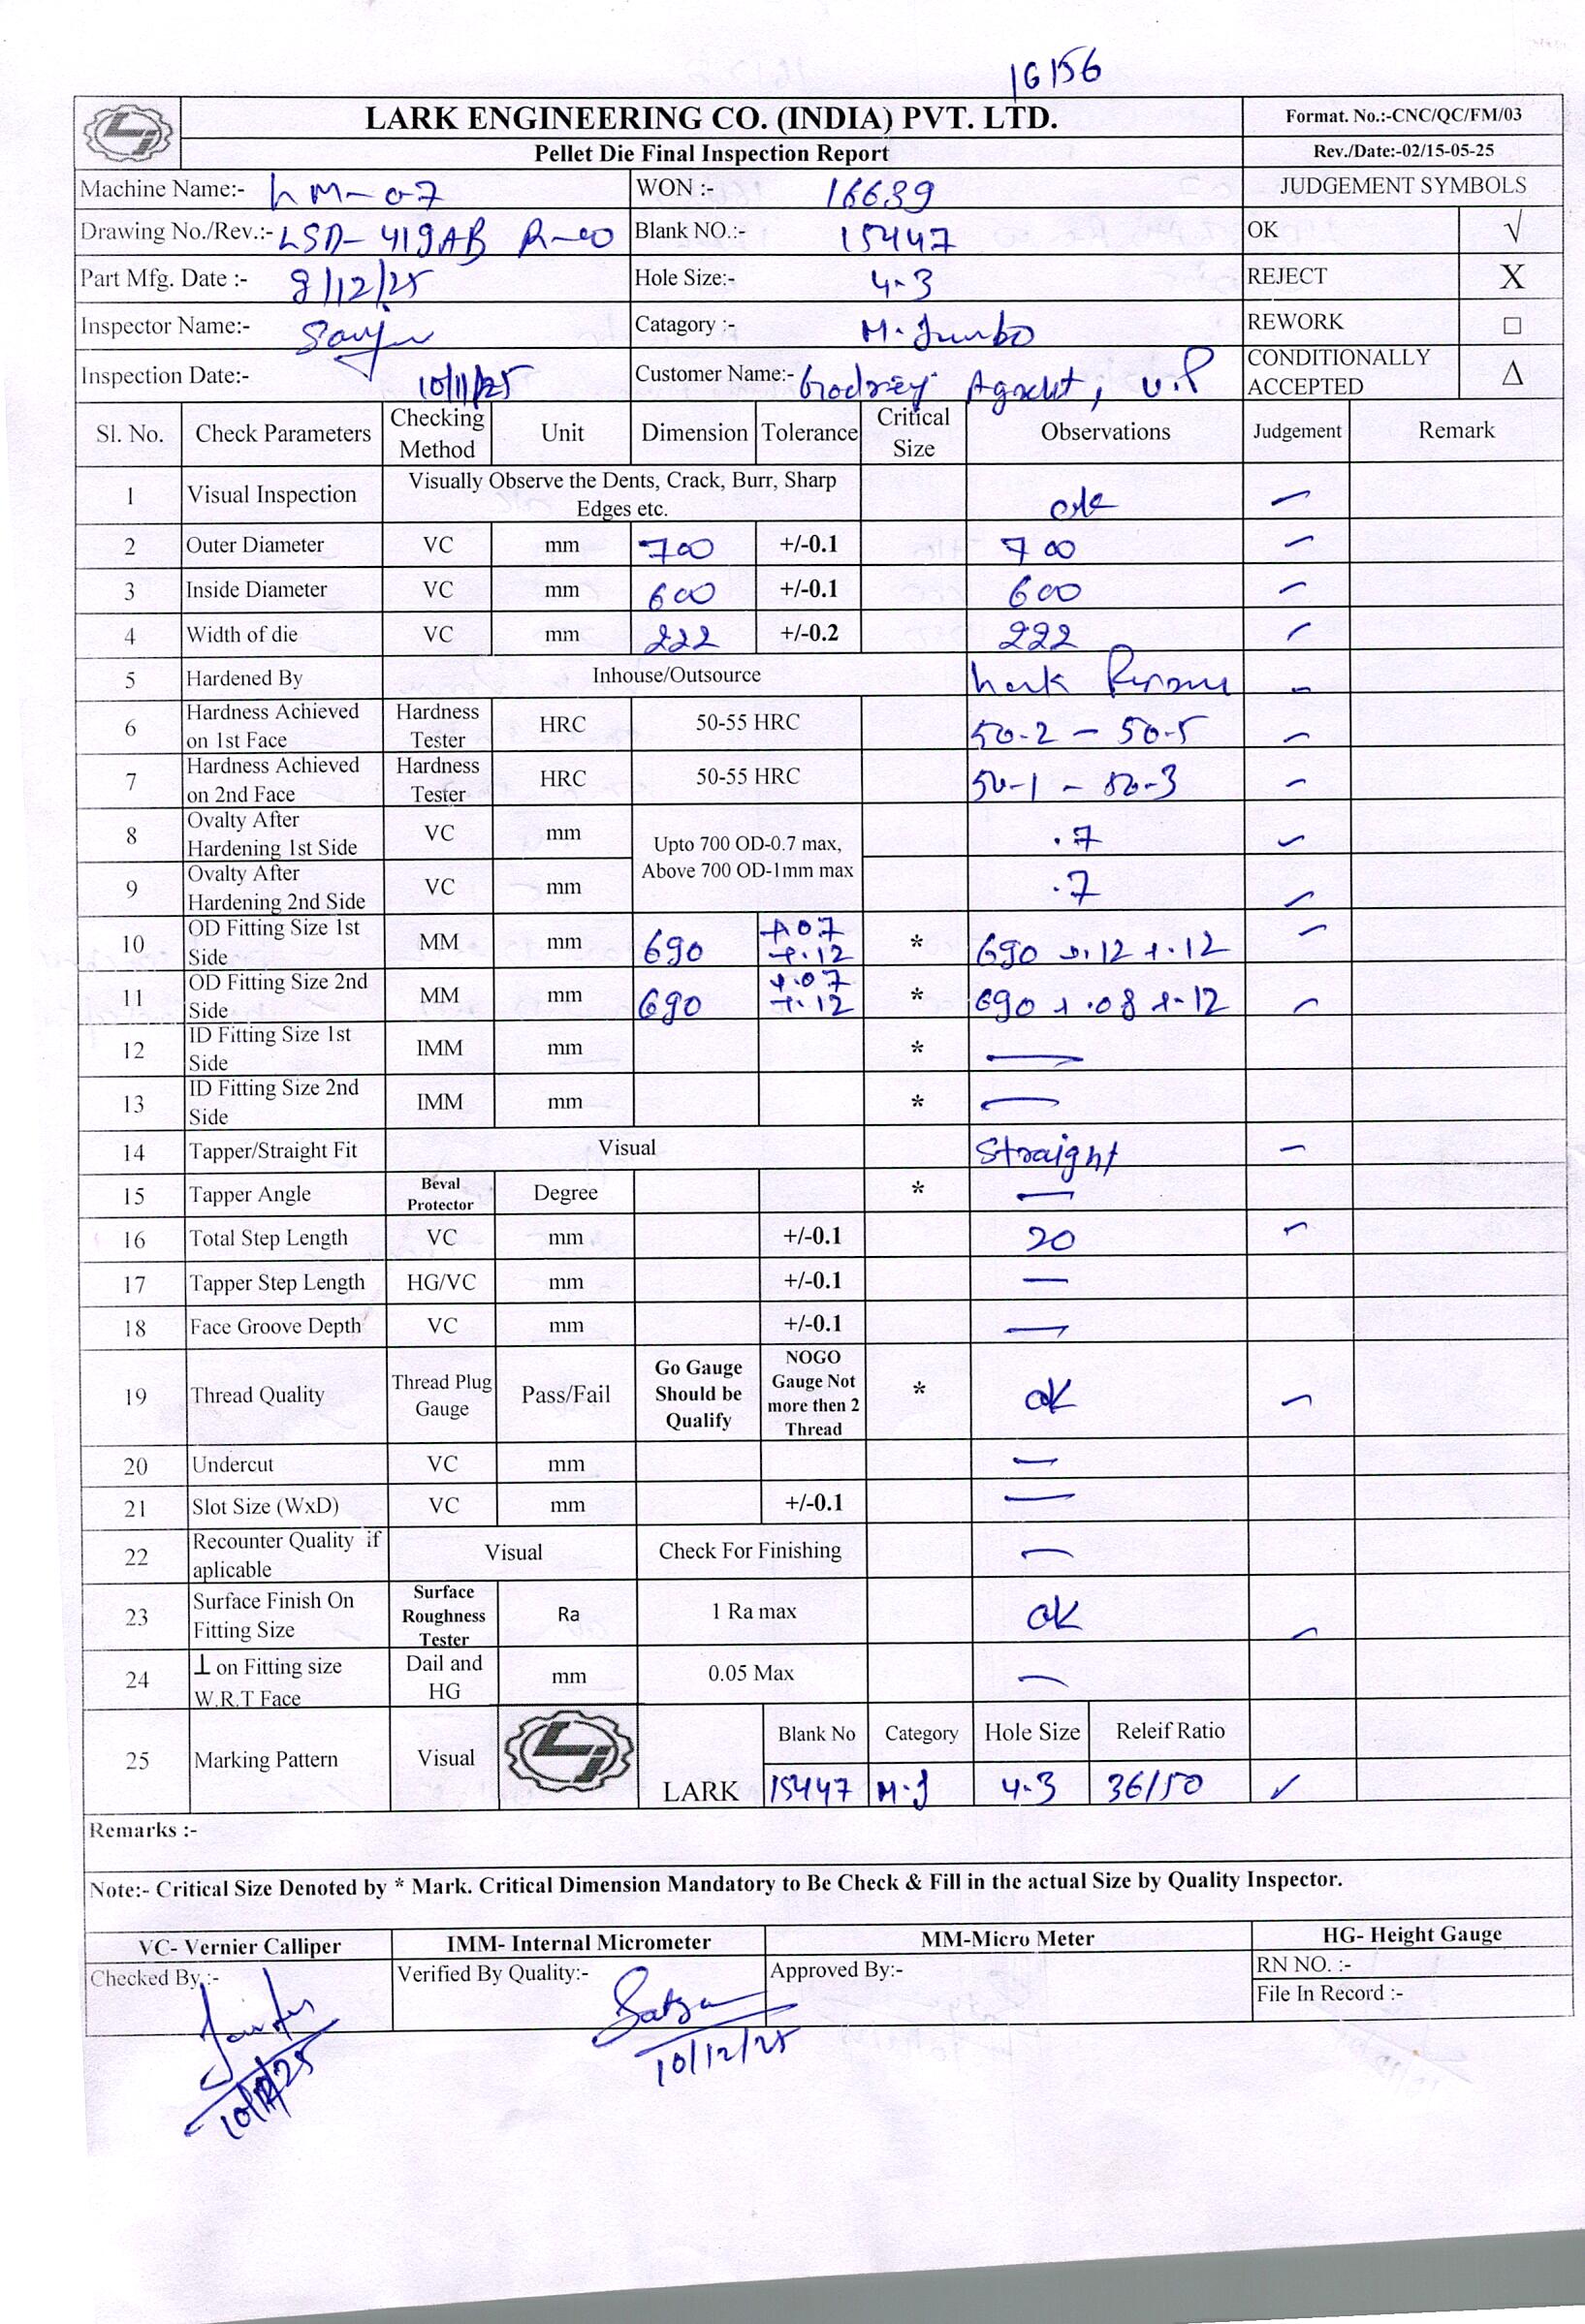 16156
LARK ENGINEERING CO. (INDIA) PVT. LTD.
Format. No.:-CNC/QC/FM/03
Pellet Die Final Inspection Report
Rev./Date:-02/15-05-25
Machine Name:- LM-07 WON :- 16639 JUDGEMENT SYMBOLS
Drawing No./Rev.:- LSD-419AB R-00 Blank NO.:- 15447 OK √
Part Mfg. Date :- 8/12/25 Hole Size:- 4.3 REJECT X
Inspector Name:- Catagory :- M.Jumbo REWORK □
Inspection Date:- Customer Name:- Godrej Agrovet, U.P CONDITIONALLY ACCEPTED Δ
Sl. No. Check Parameters Checking Method Unit Dimension Tolerance Critical Size Observations Judgement Remark
1 Visual Inspection Visually Observe the Dents, Crack, Burr, Sharp Edges etc. ok
2 Outer Diameter VC mm 700 +/-0.1 700
3 Inside Diameter VC mm 600 +/-0.1 600
4 Width of die VC mm 222 +/-0.2 222
5 Hardened By Inhouse/Outsource Lark
6 Hardness Achieved on 1st Face Hardness Tester HRC 50-55 HRC 50.2 - 50.5
7 Hardness Achieved on 2nd Face Hardness Tester HRC 50-55 HRC 50-1 - 50-3
8 Ovalty After Hardening 1st Side VC mm Upto 700 OD-0.7 max, Above 700 OD-1mm max .7
9 Ovalty After Hardening 2nd Side VC mm .7
10 OD Fitting Size 1st Side MM mm 690 +.07 +.12 * 690 +.12 +.12
11 OD Fitting Size 2nd Side MM mm 690 +.07 +.12 * 690 +.08 +.12
12 ID Fitting Size 1st Side IMM mm * —
13 ID Fitting Size 2nd Side IMM mm * —
14 Tapper/Straight Fit Visual Straight
15 Tapper Angle Beval Protector Degree * —
16 Total Step Length VC mm +/-0.1 20
17 Tapper Step Length HG/VC mm +/-0.1 —
18 Face Groove Depth VC mm +/-0.1 —
19 Thread Quality Thread Plug Gauge Pass/Fail Go Gauge Should be Qualify NOGO Gauge Not more then 2 Thread * ok
20 Undercut VC mm —
21 Slot Size (WxD) VC mm +/-0.1 —
22 Recounter Quality if aplicable Visual Check For Finishing —
23 Surface Finish On Fitting Size Surface Roughness Tester Ra 1 Ra max ok
24 ⊥ on Fitting size W.R.T Face Dail and HG mm 0.05 Max —
25 Marking Pattern Visual LARK Blank No Category Hole Size Releif Ratio
15447 M.J 4.3 36/50 ✓
Remarks :-
Note:- Critical Size Denoted by * Mark. Critical Dimension Mandatory to Be Check & Fill in the actual Size by Quality Inspector.
VC- Vernier Calliper IMM- Internal Micrometer MM-Micro Meter HG- Height Gauge
Checked By :- Verified By Quality:- Approved By:- RN NO. :-
File In Record :-
10/12/25 10/12/25